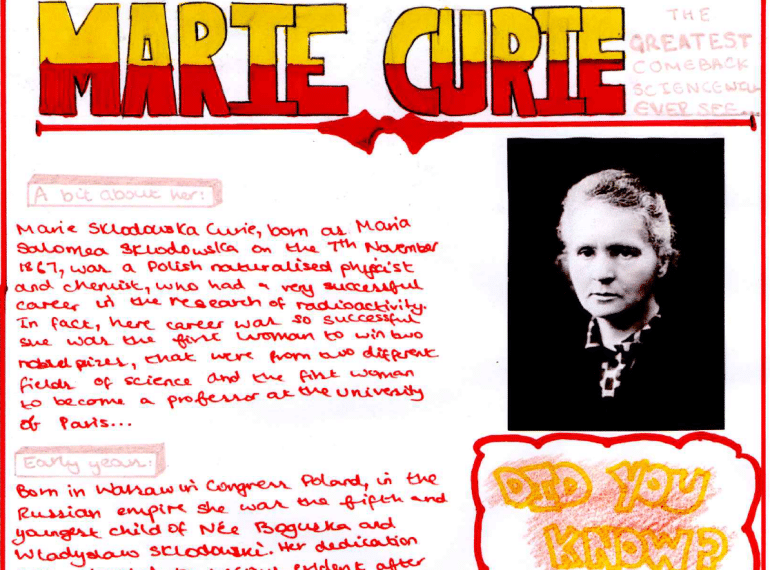 MARIE CURIE
THE
GREATEST
COMEBACK
SCIENCE WILL
EVER SEE...
A bit about her:
Marie Sklodowska Curie, born as Maria
Salomea Sklodowska on the 7th November
1867, was a Polish naturalised physicist
and chemist, who had a very successful
career in the research of radioactivity.
In fact, here career was so successful
she was the first woman to win two
nobel prizes, that were from two different
fields of science and the first woman
to become a professor at the University
of Paris...
Early years:
Born in Warsaw in Congress Poland, in the
Russian empire she was the fifth and
youngest child of Née Boguska and
Wladyslaw Sklodowski. Her dedication
evident after
DID YOU
KNOW?